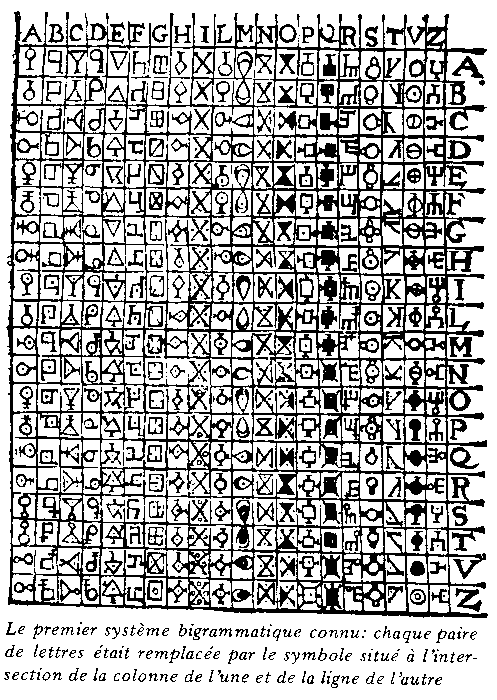 A B C D E F G H I L M N O P Q R S T V Z
A
B
C
D
E
F
G
H
I
L
M
N
O
P
Q
R
S
T
V
Z
Le premier système bigrammatique connu: chaque paire
de lettres était remplacée par le symbole situé à l'inter-
section de la colonne de l'une et de la ligne de l'autre